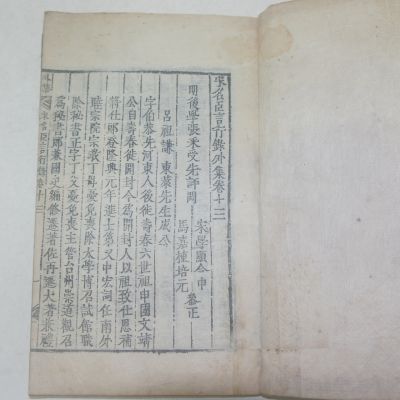 宋名臣言行錄外集卷十三
明後學張采受先評閱
宋學顯令申
馬嘉植培元
叅正
呂祖謙 東萊先生成公
字伯恭先河東人後徙壽春六世祖申國文靖
公自壽春徙開封今為開封人以祖致仕恩補
將仕郎登隆興元年進士第又中宏詞任南外
睦宗院宗教丁母憂免喪除太學博召試館職
除秘書正字丁父憂免喪主管台州崇道觀召
為秘書郎兼國史編修遷著佐再遷大著兼禮
宋名臣言行錄 卷十三